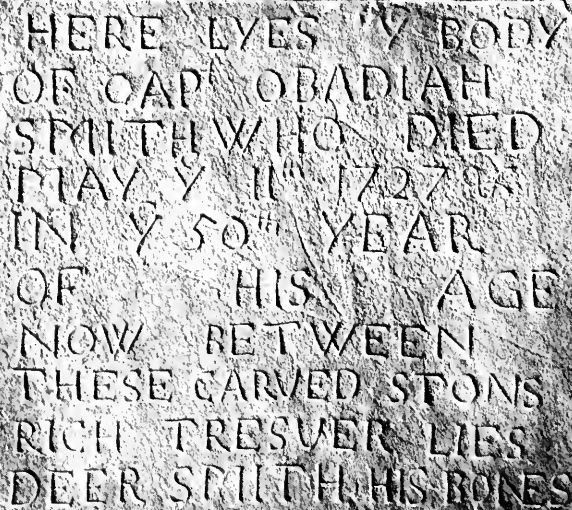 HERE LYES Y BODY
OF CAP OBADIAH
SMITH WHO DIED
MAY Y 11th 1727 &
IN Y 50th YEAR
OF HIS AGE
NOW BETWEEN
THESE CARVED STONS
RICH TRESUER LIES
DEER SMITH HIS BONES